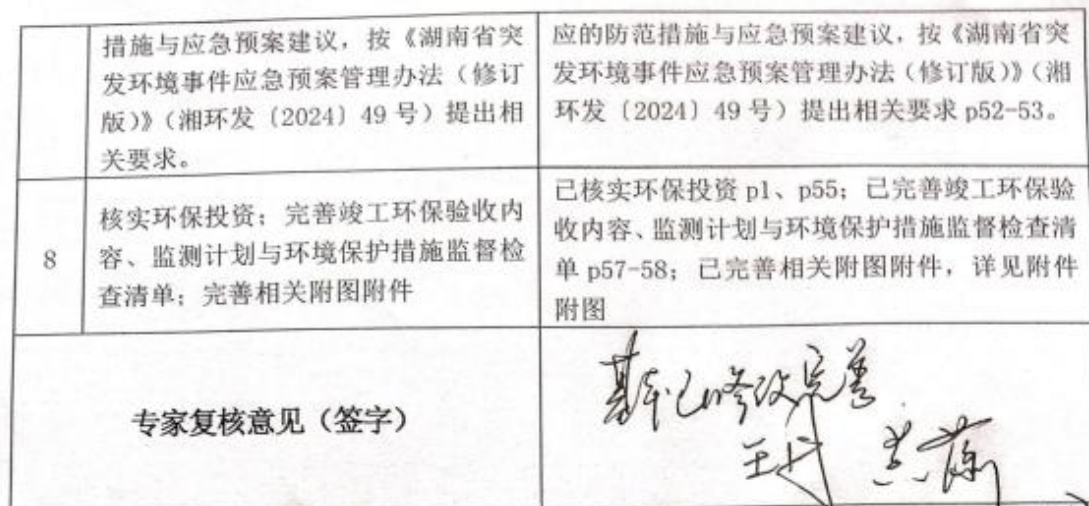 措施与应急预案建议，按《湖南省突
发环境事件应急预案管理办法（修订
版)》（湘环发〔2024〕49 号）提出相
关要求。
应的防范措施与应急预案建议，按《湖南省突
发环境事件应急预案管理办法（修订版)》（湘
环发〔2024〕49 号）提出相关要求 p52-53。
8
核实环保投资；完善竣工环保验收内
容、监测计划与环境保护措施监督检
查清单；完善相关附图附件
已核实环保投资 p1、p55；已完善竣工环保验
收内容、监测计划与环境保护措施监督检查清
单 p57-58；已完善相关附图附件，详见附件
附图
专家复核意见（签字）
基本已修改完善